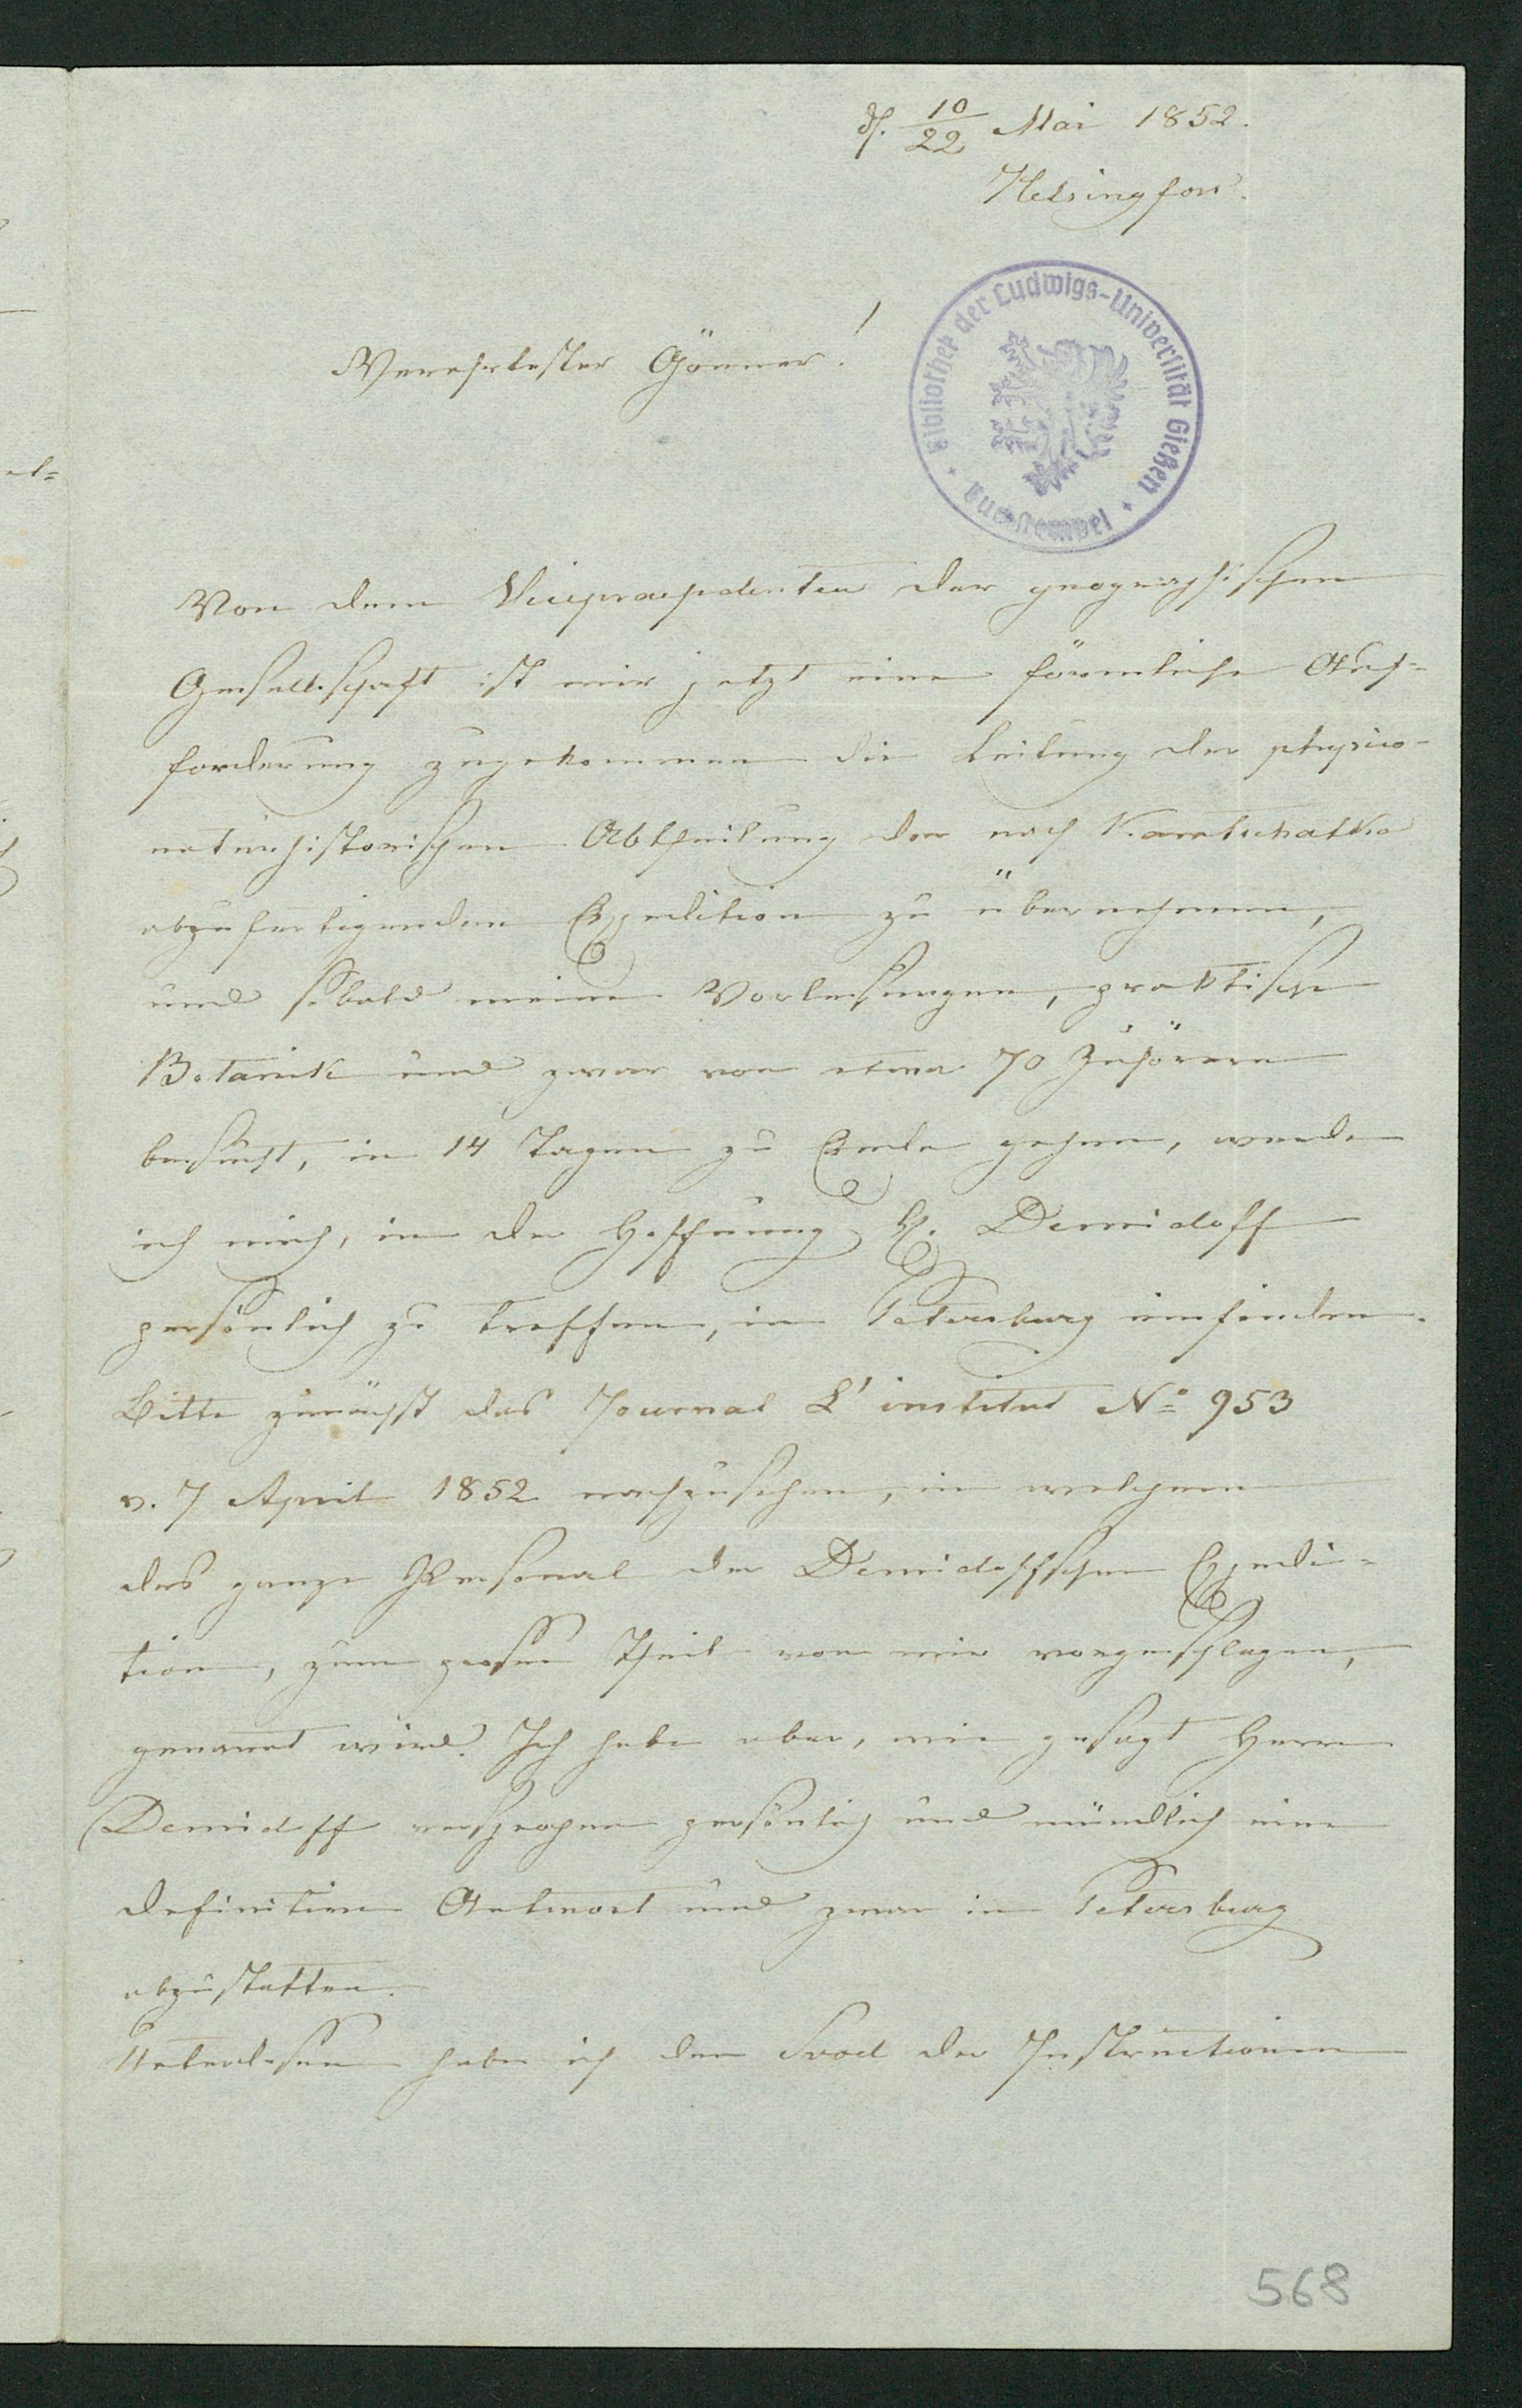 d. 10/22 Mai 1852.
Helsingfors.
Verehrtester Gönner!
Bibliothek der Ludwigs-Universität Gießen
Von dem Vicepraesidenten der geographischen
Gesellschaft ist mir jetzt eine förmliche Auf-
forderung zugekommen die Leitung der physico-
naturhistorischen Abtheilung der nach Kamtschatka
abzufertigenden Expedition zu übernehmen,
und sobald meine Vorlesungen, praktische
Botanik und zwar von etwa 70 Zuhörern
besucht, in 14 Tagen zu Ende gehen, werde
ich mich, in der Hoffnung H. Demidoff
persönlich zu treffen, in Petersburg einfinden.
Bitte zunächst das Journal L'institut No 953
v. 7 April 1852 nachzusehen, in welchem
das ganze Personal der Demidoffschen Expedi-
tion, zum grossen Theil von mir vorgeschlagen,
genannt wird. Ich habe aber, wie gesagt Herrn
Demidoff versprochen persönlich und mündlich eine
definitive Antwort und zwar in Petersburg
abzustatten.
Unterdessen habe ich den Svod der Instructionen
568